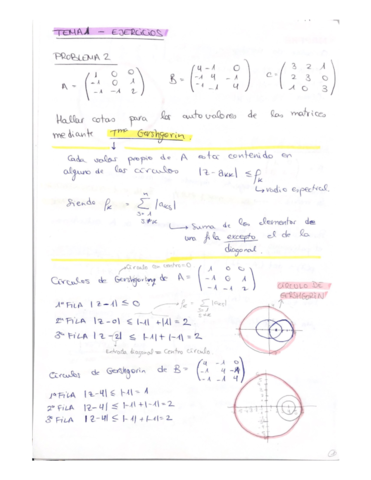 TEMA 1 - EJERCICIOS
PROBLEMA 2
A = ( 1 0 0 / -1 0 1 / -1 -1 2 ) B = ( 4 -1 0 / -1 4 -1 / -1 -1 4 ) C = ( 3 2 1 / 2 3 0 / 1 0 3 )
Hallar cotas para los autovalores de las matrices
mediante Tma Gershgorin.
Cada valor propio de A está contenido en
alguno de los círculos |z - akk| ≤ ρk
radio espectral.
siendo ρk = Σ |akj|
n
j=1
j≠k
Suma de los elementos de
una fila excepto el de la
diagonal.
Círculo en centro=0
Círculos de Gershgorin de A = ( 1 0 0 / -1 0 1 / -1 -1 2 )
CÍRCULO DE GERSHGORIN
1ª FILA |z-1| ≤ 0
2ª FILA |z-0| ≤ |-1|+|1| = 2
3ª FILA |z-2| ≤ |-1|+|-1| = 2
Entrada diagonal = centro círculo.
Círculos de Gershgorin de B = ( 4 -1 0 / -1 4 -1 / -1 -1 4 )
1ª FILA |z-4| ≤ |-1| = 1
2ª FILA |z-4| ≤ |-1|+|-1| = 2
3ª FILA |z-4| ≤ |-1|+|-1| = 2